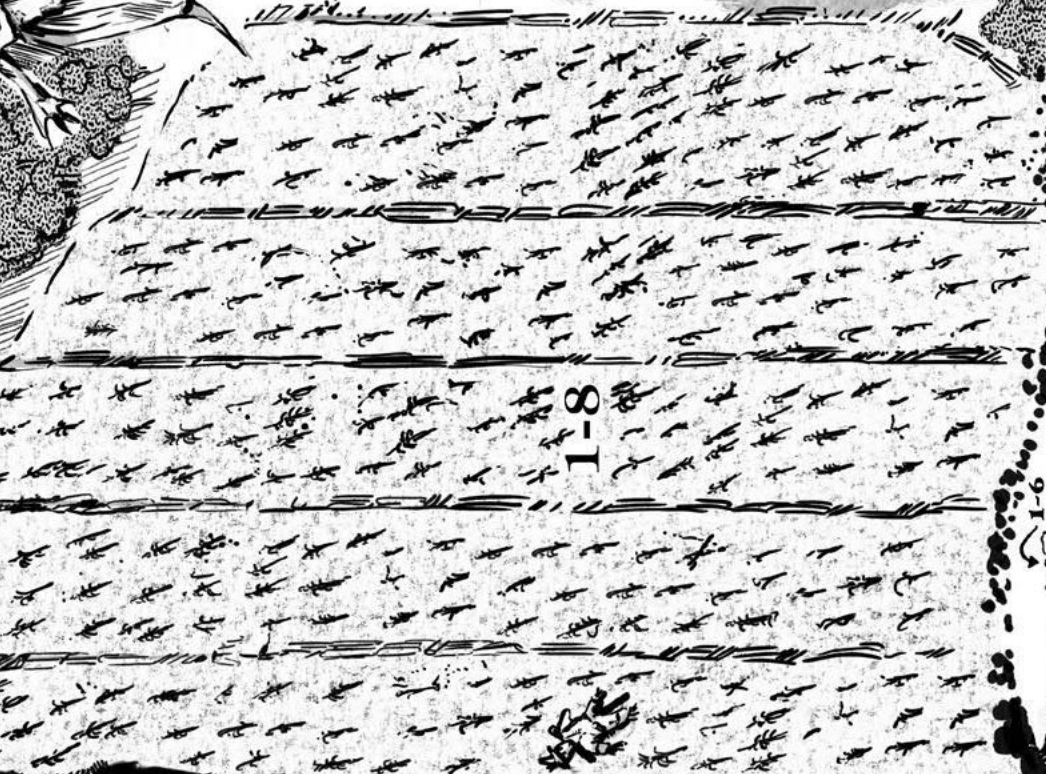 1-8
1-6